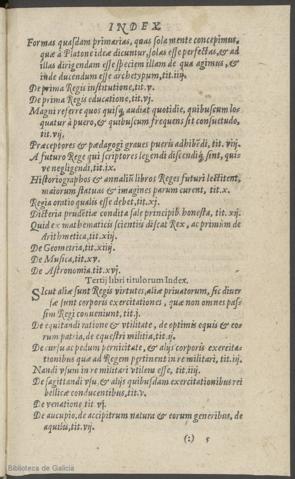 INDEX
Formas quasdam primarias, quas sola mente concepimus,
quæ à Platone ideæ dicuntur, solas esse perfectas, & ad
illas dirigendam esse speciem illam de qua agimus, &
inde ducendum esse archetypum, tit. iiij.
De prima Regis institutione, tit. v.
De prima Regis educatione, tit. vj.
Magni referre quos quisq; audiat quotidie, quibuscum lo-
quatur à puero, & quibuscum frequens sit consuetudo,
tit. vij.
Præceptores & pædagogi graues pueris adhibēdi, tit. viij.
A futuro Rege qui scriptores legendi discendiq; sint, quis-
ve negligendi, tit. ix.
Historiographos & annaliū libros Reges futuri lectitent,
maiorum statuas & imagines parum curent, tit. x.
Regia oratio qualis esse debet, tit. xj.
Dicteria prudētiæ condita sale principib. honesta, tit. xij.
Quid ex mathematicis scientiis discat Rex, ac primùm de
Arithmetica, tit. xiij.
De Geometria, tit. xiiij.
De Musica, tit. xv.
De Astronomia, tit. xvj.
Tertij libri titulorum Index.
SIcut aliæ sunt Regis virtutes, aliæ priuatorum, sic diuer
sæ sunt corporis exercitationes, quæ non omnes pas-
sim Regi conueniunt, tit. j.
De equitandi ratione & vtilitate, de optimis equis & eo-
rum patria, de equestri militia, tit. ij.
De cursu ac pedum pernicitate, & alijs corporis exercita-
tionibus quæ ad Regem pertinent in re militari, tit. iij.
Nandi vsum in re militari vtilem esse, tit. iiij.
De sagittandi vsu, & alijs quibusdam exercitationibus rei
bellicæ conducentibus, tit. v.
De venatione tit. vj.
De aucupio, de accipitrum natura & eorum generibus, de
aquila, tit. vij.
(:) 5
Biblioteca de Galicia